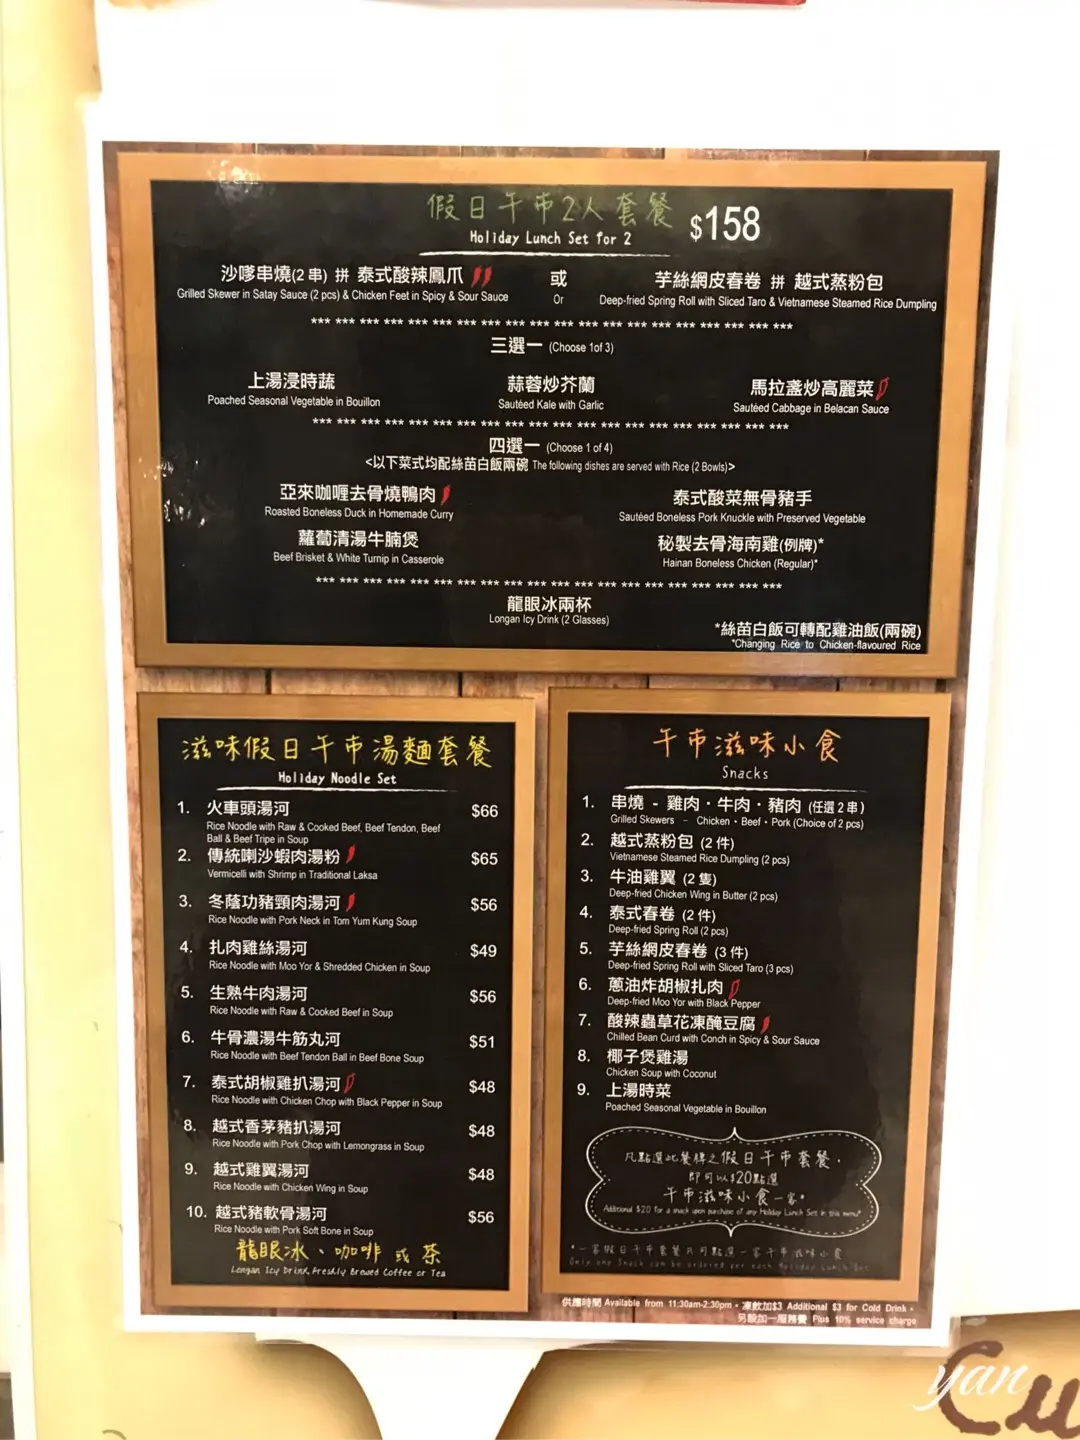 假日午市2人套餐 $158
Holiday Lunch Set for 2
沙嗲串燒(2 串) 拼 泰式酸辣鳳爪 或 芋絲網皮春卷 拼 越式蒸粉包
Grilled Skewer in Satay Sauce (2 pcs) & Chicken Feet in Spicy & Sour Sauce Or Deep-fried Spring Roll with Sliced Taro & Vietnamese Steamed Rice Dumpling
*** *** *** *** *** *** *** *** *** *** *** *** *** *** *** *** *** *** *** *** ***
三選一 (Choose 1of 3)
上湯浸時蔬 蒜蓉炒芥蘭 馬拉盞炒高麗菜
Poached Seasonal Vegetable in Bouillon Sautéed Kale with Garlic Sautéed Cabbage in Belacan Sauce
*** *** *** *** *** *** *** *** *** *** *** *** *** *** *** *** *** *** *** *** ***
四選一 (Choose 1 of 4)
<以下菜式均配絲苗白飯兩碗 The following dishes are served with Rice (2 Bowls)>
亞來咖喱去骨燒鴨肉 泰式酸菜無骨豬手
Roasted Boneless Duck in Homemade Curry Sautéed Boneless Pork Knuckle with Preserved Vegetable
蘿蔔清湯牛腩煲 秘製去骨海南雞(例牌)*
Beef Brisket & White Turnip in Casserole Hainan Boneless Chicken (Regular)*
*** *** *** *** *** *** *** *** *** *** *** *** *** *** *** *** *** *** *** *** ***
龍眼冰兩杯
Longan Icy Drink (2 Glasses)
*絲苗白飯可轉配雞油飯(兩碗)
*Changing Rice to Chicken-flavoured Rice
滋味假日午市湯麵套餐
Holiday Noodle Set
1. 火車頭湯河 $66
Rice Noodle with Raw & Cooked Beef, Beef Tendon, Beef
Ball & Beef Tripe in Soup
2. 傳統喇沙蝦肉湯粉 $65
Vermicelli with Shrimp in Traditional Laksa
3. 冬蔭功豬頸肉湯河 $56
Rice Noodle with Pork Neck in Tom Yum Kung Soup
4. 扎肉雞絲湯河 $49
Rice Noodle with Moo Yor & Shredded Chicken in Soup
5. 生熟牛肉湯河 $56
Rice Noodle with Raw & Cooked Beef in Soup
6. 牛骨濃湯牛筋丸河 $51
Rice Noodle with Beef Tendon Ball in Beef Bone Soup
7. 泰式胡椒雞扒湯河 $48
Rice Noodle with Chicken Chop with Black Pepper in Soup
8. 越式香茅豬扒湯河 $48
Rice Noodle with Pork Chop with Lemongrass in Soup
9. 越式雞翼湯河 $48
Rice Noodle with Chicken Wing in Soup
10. 越式豬軟骨湯河 $56
Rice Noodle with Pork Soft Bone in Soup
龍眼冰、咖啡 或 茶
Longan Icy Drink, Freshly Brewed Coffee or Tea
午市滋味小食
Snacks
1. 串燒 - 雞肉・牛肉・豬肉 (任選 2 串)
Grilled Skewers - Chicken・Beef・Pork (Choice of 2 pcs)
2. 越式蒸粉包 (2 件)
Vietnamese Steamed Rice Dumpling (2 pcs)
3. 牛油雞翼 (2 隻)
Deep-fried Chicken Wing in Butter (2 pcs)
4. 泰式春卷 (2 件)
Deep-fried Spring Roll (2 pcs)
5. 芋絲網皮春卷 (3 件)
Deep-fried Spring Roll with Sliced Taro (3 pcs)
6. 蔥油炸胡椒扎肉
Deep-fried Moo Yor with Black Pepper
7. 酸辣蟲草花凍醃豆腐
Chilled Bean Curd with Conch in Spicy & Sour Sauce
8. 椰子煲雞湯
Chicken Soup with Coconut
9. 上湯時菜
Poached Seasonal Vegetable in Bouillon
凡點選此餐牌之假日午市套餐,
即可以$20點選
午市滋味小食一客*
Additional $20 for a snack upon purchase of any Holiday Lunch Set in this menu*
*一客假日午市套餐只可點選一客午市滋味小食
Only one Snack can be ordered per each Holiday Lunch Set
供應時間 Available from 11:30am-2:30pm・凍飲加$3 Additional $3 for Cold Drink・
另設加一服務費 Plus 10% service charge
yan
Cu